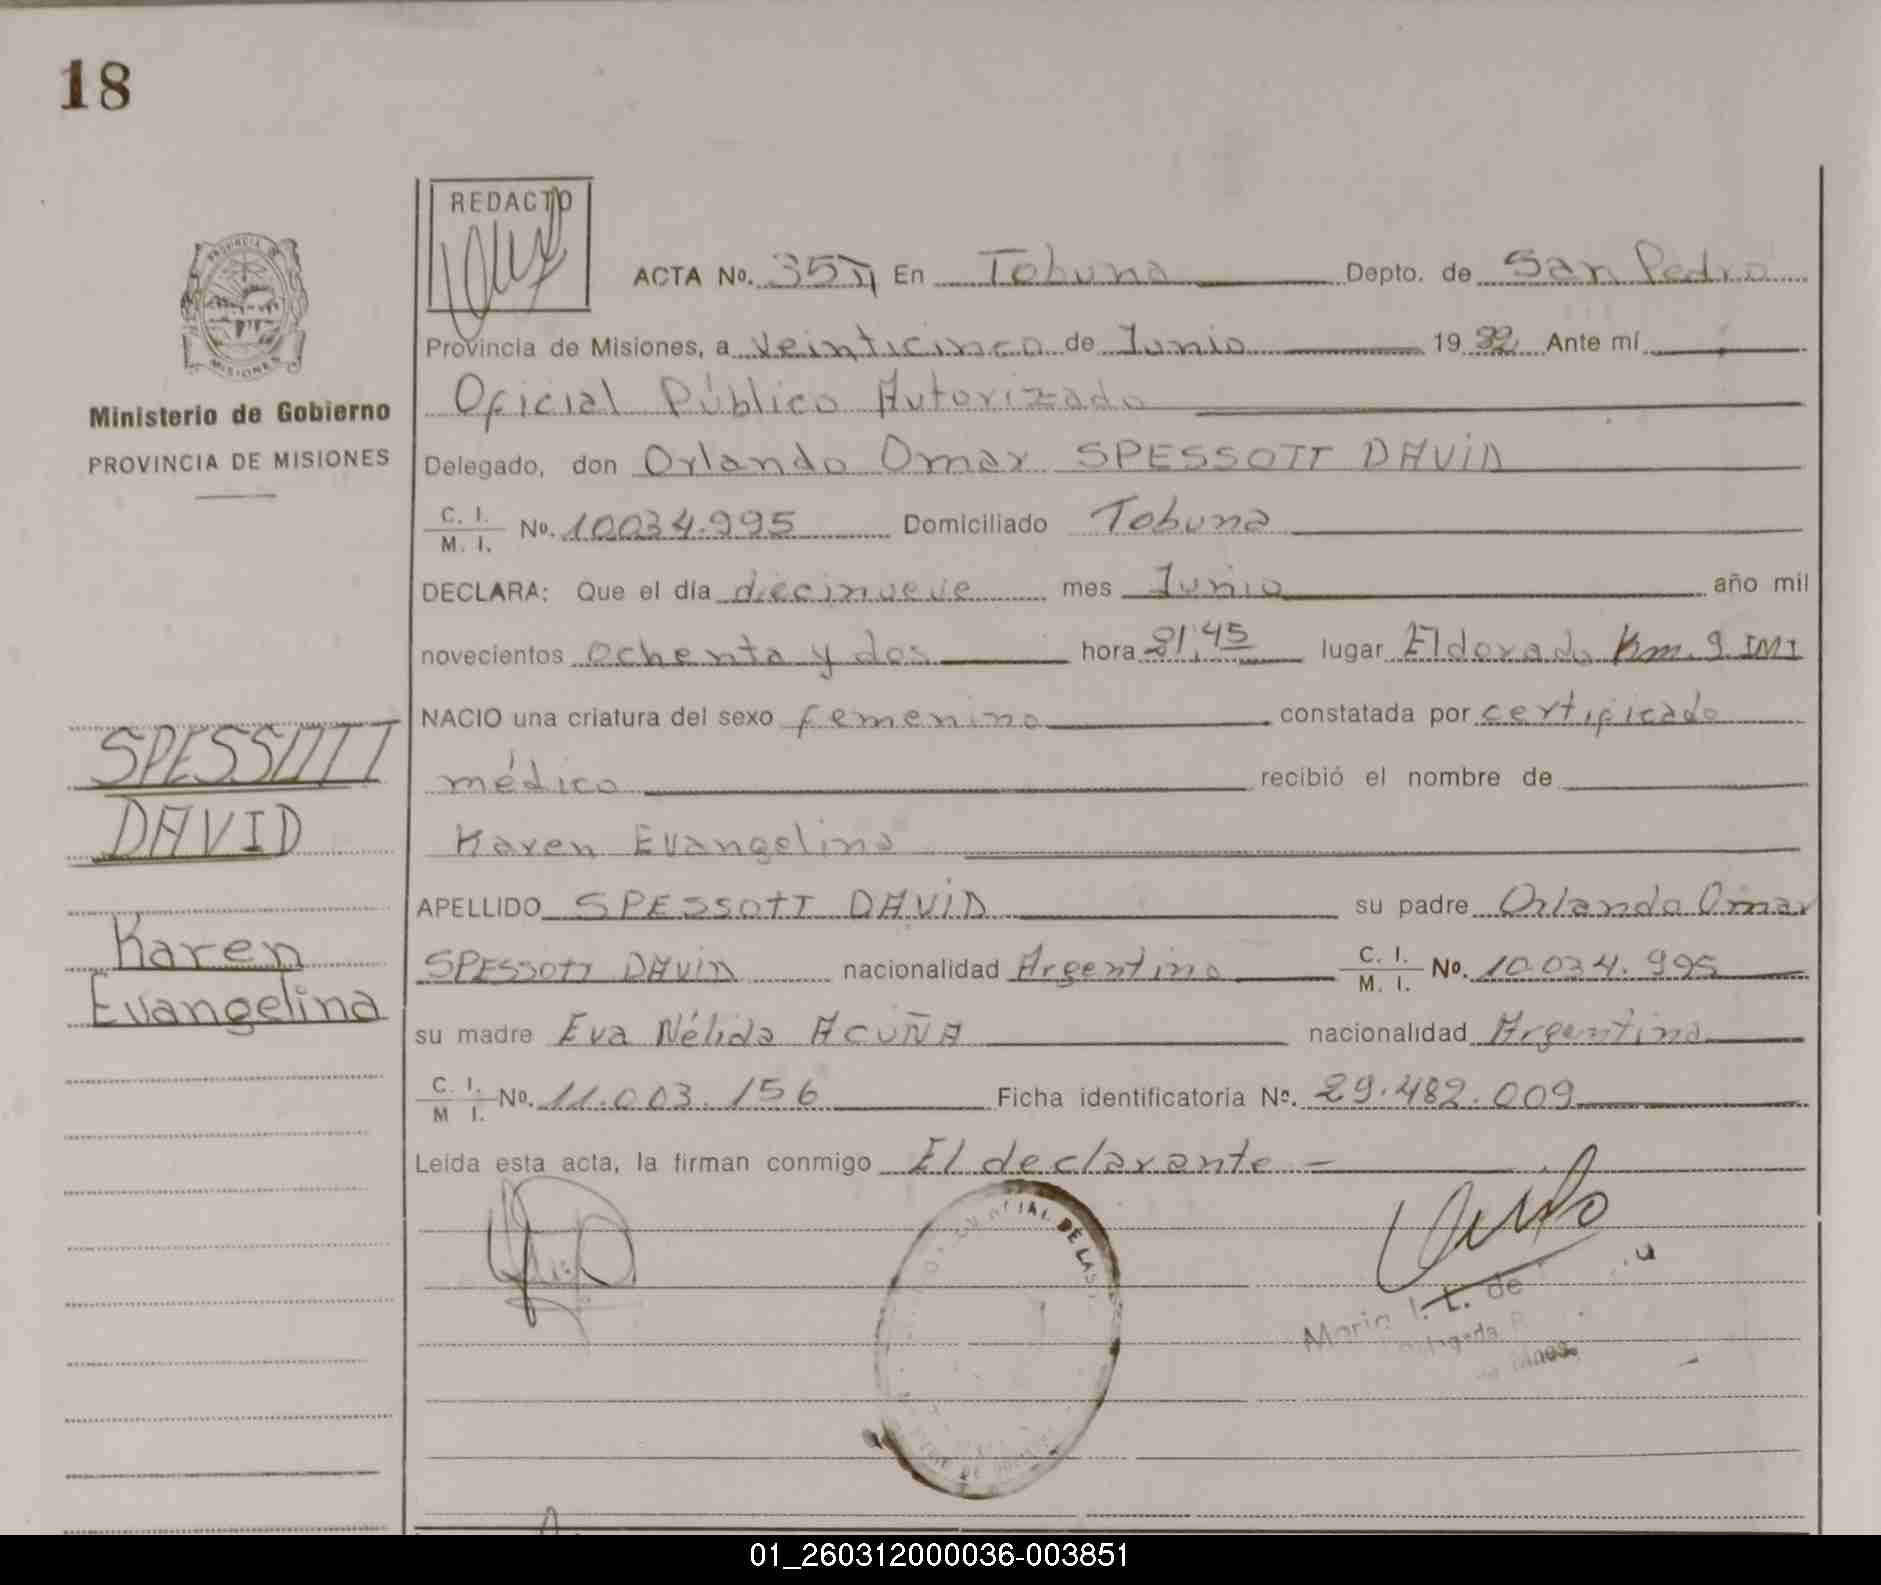 18
REDACTO
ACTA No. 35 En Tobuna Depto. de San Pedro
Provincia de Misiones, a veinticinco de Junio 1982 Ante mí
Oficial Público Autorizado
Delegado, don Orlando Omar SPESSOTT DAVID
C. I. / M. I. No. 10034.995 Domiciliado Tobuna
DECLARA: Que el día diecinueve mes Junio año mil
novecientos ochenta y dos hora 21,45 lugar Eldorado Km. 9. IMI
NACIO una criatura del sexo femenino constatada por certificado
médico recibió el nombre de
Karen Evangelina
APELLIDO SPESSOTT DAVID su padre Orlando Omar
SPESSOTT DAVID nacionalidad Argentina C. I. / M. I. No. 10.034.995
su madre Eva Nélida ACUÑA nacionalidad Argentina
C. I. / M I. No. 11.003.156 Ficha identificatoria No. 29.482.009
Leída esta acta, la firman conmigo El declarante -
PROVINCIA DE
MISIONES
Ministerio de Gobierno
PROVINCIA DE MISIONES
SPESSOTT
DAVID
Karen
Evangelina
DE LAS
Maria I. T. de
01_260312000036-003851